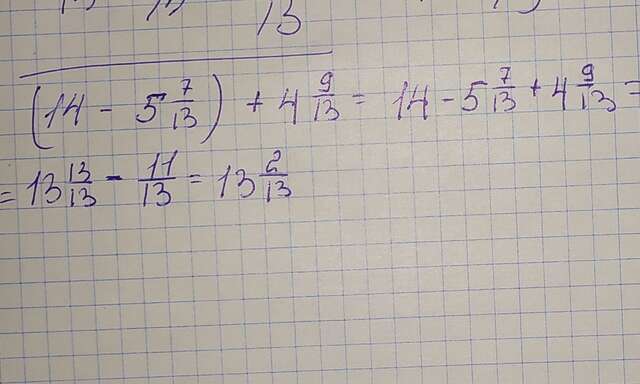 13
(14 - 5 7/13) + 4 9/13 = 14 - 5 7/13 + 4 9/13 =
= 13 13/13 - 11/13 = 13 2/13